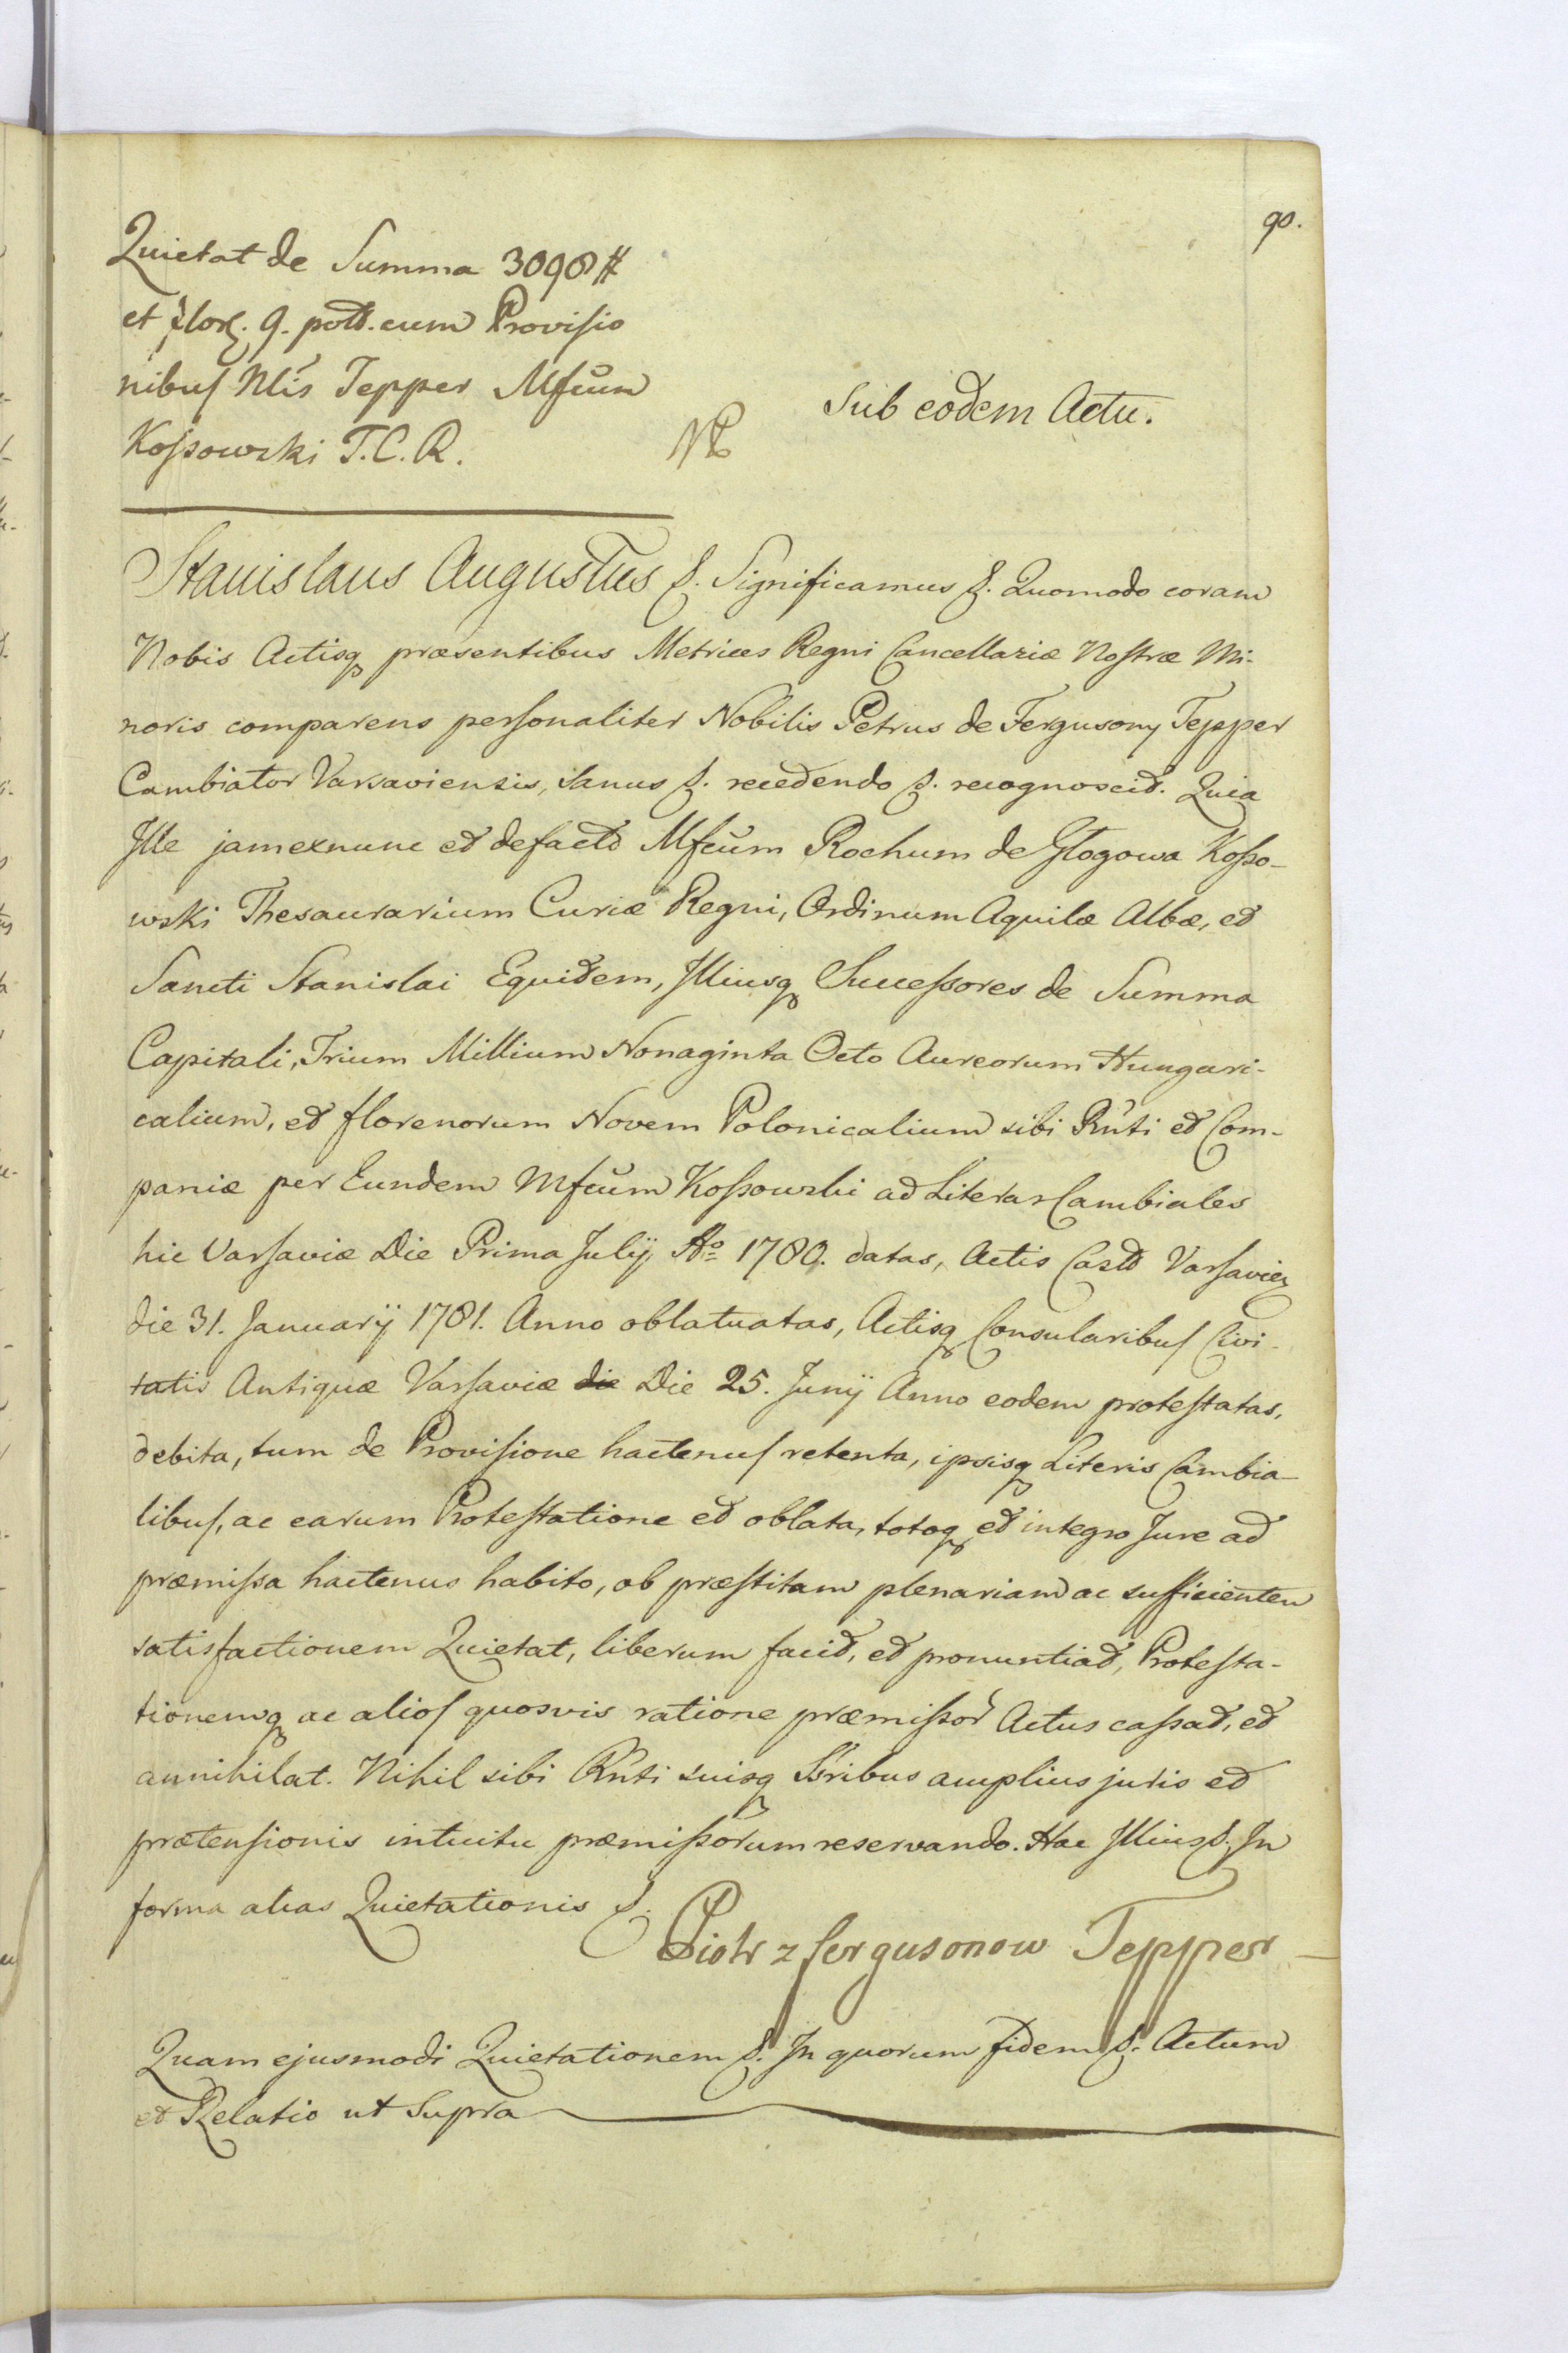 90.
Quietat de Summa 3098 #
et flor. 9. poll. cum Provisio
nibus Nlis Tepper Mfcum
Kossowski T. C. R.
Sub eodem Actu.
Stanislaus Augustus &. Significamus &. Quomodo coram
Nobis Actisq præsentibus Metrices Regni Cancellariæ Nostræ Mi-
noris comparens personaliter Nobilis Petrus de Fergusony Tepper
Cambiator Varsaviensis, sanus &. recedendo &. recognoscit. Quia
Ille jamexnunc et defacto Mfcum Rochum de Glogowa Kosso-
wski Thesaurarium Curiæ Regni, Ordinum Aquilæ Albæ, et
Sancti Stanislai Equidem, Illiusq Successores de Summa
Capitali, Trium Millium Nonaginta Octo Aureorum Hungari-
calium, et florenorum Novem Polonicalium sibi Rnti et Com-
paniæ per Eundem Mfcum Kossowski ad Literas Cambiales
hic Varsaviæ Die Prima July Ao 1780. datas, Actis Castr Varsavien
die 31. January 1781. Anno oblatuatas, Actisq Consularibus Civi-
tatis Antiquæ Varsaviæ die Die 25. Juny Anno eodem protestatas,
debita, tum de Provisione hactenus retenta, ipsisq Literis Cambia-
libus, ac earum Protestatione et oblata, totoq et integro Jure ad
præmissa hactenus habito, ob præstitam plenariam ac sufficientem
satisfactionem Quietat, liberum facit, et pronuntiat, Protesta-
tionemq ac alios quosvis ratione præmissor Actus cassat, et
annihilat. Nihil sibi Rnti suisq Ssribus amplius juris et
prætensionis intuitu præmissorum reservando. Hac Illius &. In
forma atias Quietationis &.
Piotr z fergusonow Tepper
Quam ejusmodi Quietationem &. In quorum fidem &. Actum
et Relatio ut Supra